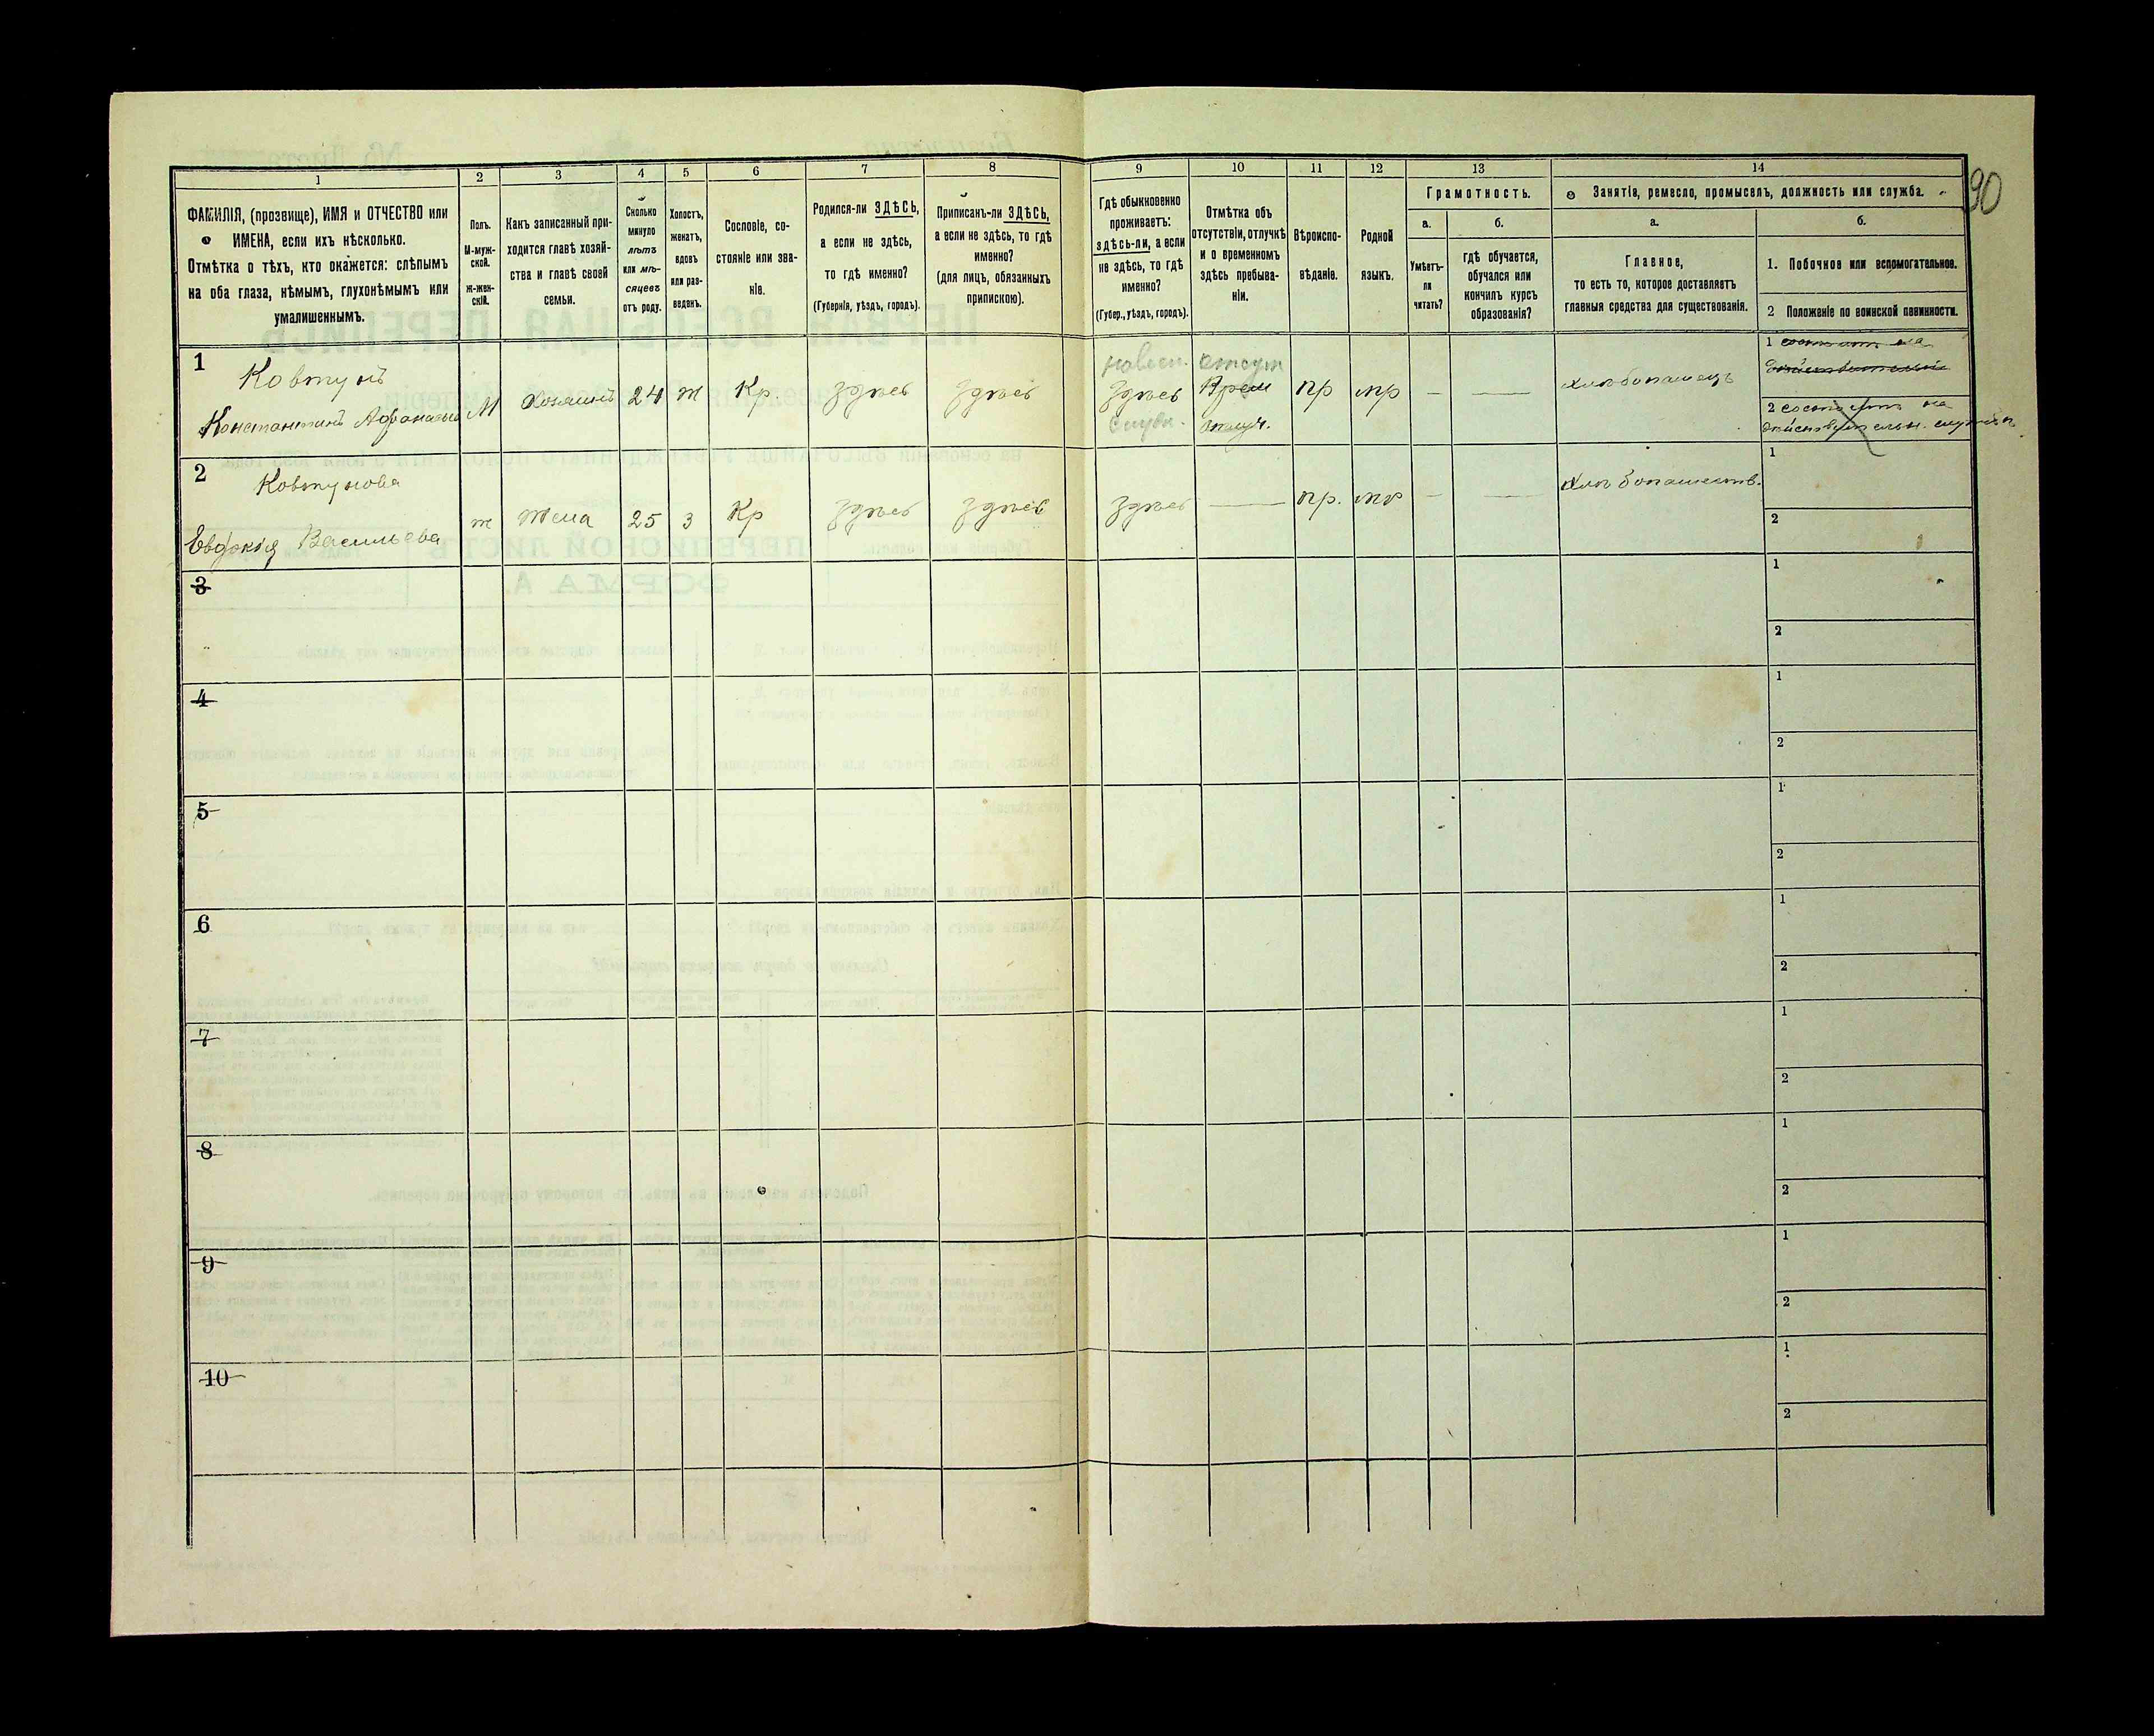 90
1
2
3
4
5
6
7
8
9
10
11
12
13
14
ФАМИЛІЯ, (прозвище), ИМЯ и ОТЧЕСТВО или
ИМЕНА, если ихъ нѣсколько.
Отмѣтка о тѣхъ, кто окажется: слѣпымъ
на оба глаза, нѣмымъ, глухонѣмымъ или
умалишеннымъ.
Полъ.
М-муж-
ской.
ж-жен-
скій.
Какъ записанный при-
ходится главѣ хозяй-
ства и главѣ своей
семьи.
Сколько
минуло
лѣтъ
или мѣ-
сяцевъ
отъ роду.
Холостъ,
женатъ,
вдовъ
или раз-
веденъ.
Сословіе, со-
стояніе или зва-
ніе.
Родился-ли ЗДѢСЬ,
а если не здѣсь,
то гдѣ именно?
(Губернія, уѣздъ, городъ).
Приписанъ-ли ЗДѢСЬ,
а если не здѣсь, то гдѣ
именно?
(для лицъ, обязанныхъ
припискою).
Гдѣ обыкновенно
проживаетъ:
здѣсь-ли, а если
не здѣсь, то гдѣ
именно?
(Губер., уѣздъ, городъ).
Отмѣтка объ
отсутствіи, отлучкѣ
и о временномъ
здѣсь пребыва-
ніи.
Вѣроиспо-
вѣданіе.
Родной
языкъ.
Грамотность.
а.
Умѣетъ-
ли
читать?
б.
гдѣ обучается,
обучался или
кончилъ курсъ
образованія?
Занятія, ремесло, промыселъ, должность или служба.
а.
Главное,
то есть то, которое доставляетъ
главныя средства для существованія.
б.
1. Побочное или вспомогательное.
2 Положеніе по воинской повинности.
1
Ковтунъ
Константинъ Афанасьев
М
Хозяинъ
24
ж
Кр.
здѣсь
здѣсь
здѣсь
отсут
Врем
отлуч.
пр
мр
—
—
хлѣбопашецъ
1 состоитъ на
дѣйствительной
2 состоитъ на
дѣйствительн. службѣ
2
Ковтунова
Евдокія Васильева
ж
жена
25
з
Кр
здѣсь
здѣсь
здѣсь
—
пр.
мр
—
—
хлѣбопашеств.
1
2
3
1
2
4
1
2
5
1
2
6
1
2
7
1
2
8
1
2
9
1
2
10
1
2